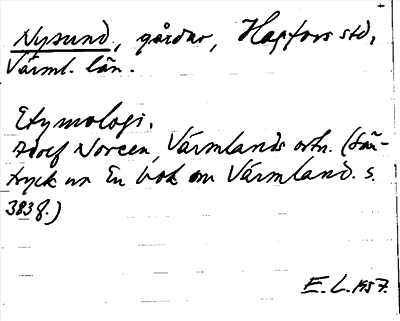 Nysund, gårdar, Hagfors std,
Värml. län.
Etymologi.
Adolf Noreen, Värmlands ortn. (Sär-
tryck ur En bok om Värmland. s.
383f.)
E. L. 1957.